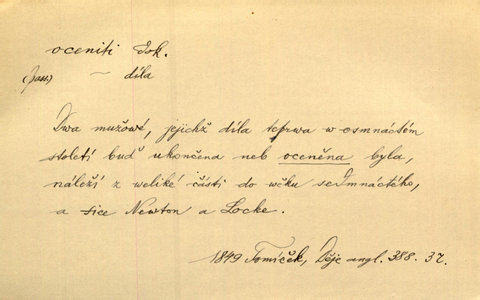 oceniti dok.
(pass.) ~ díla
Dwa mužowé, jejichž díla teprwa w osmnáctém
století buď ukončena neb oceněna byla,
náleží z weliké části do wěku sedmnáctého,
a sice Newton a Locke.
1849 Tomíček, Děje angl. 388. 37.